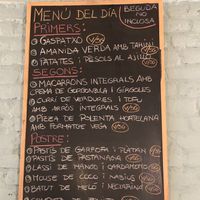 MENÚ DEL DÍA
BEGUDA
NO
INCLOSA
PRIMERS:
GASPATXO V/SG
AMANIDA VERDA AMB TAHINI
PATATES I PÈSOLS AL AJILLO
SEGONS:
MACARRONS INTEGRALS AMB
CREMA DE GORGONZOLA I GÍRGOLES
CURRI DE VERDURES I TOFU
AMB ARRÒS INTEGRAL V/SG
PIZZA DE POLENTA HORTELANA
AMB FORMATGE VEGÀ V/SG
POSTRE:
PASTÍS DE GARROFA I PLÀTAN
PASTÍS DE PASTANAGA
LASSI DE MANGO I CARDAMOM
MOUSE DE COCO I NABIUS
BATUT DE MELÓ I NECTARINA